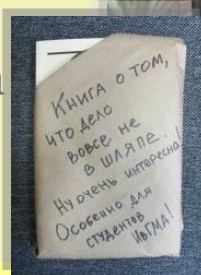 Книга о том,
что дело
вовсе не
в шляпе..!
Ну очень интересно!
Особенно для
студентов
ИвГМА!